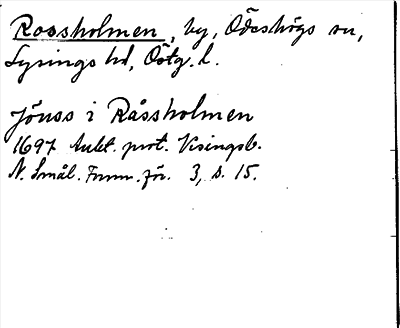 Rossholmen, by, Ödeshögs sn,
Lysings hd, Östg. l.
Jönss i Råssholmen
1697 Aukt. prot. Visingsb.
N. Smål. Fornm.för. 3, s. 15.